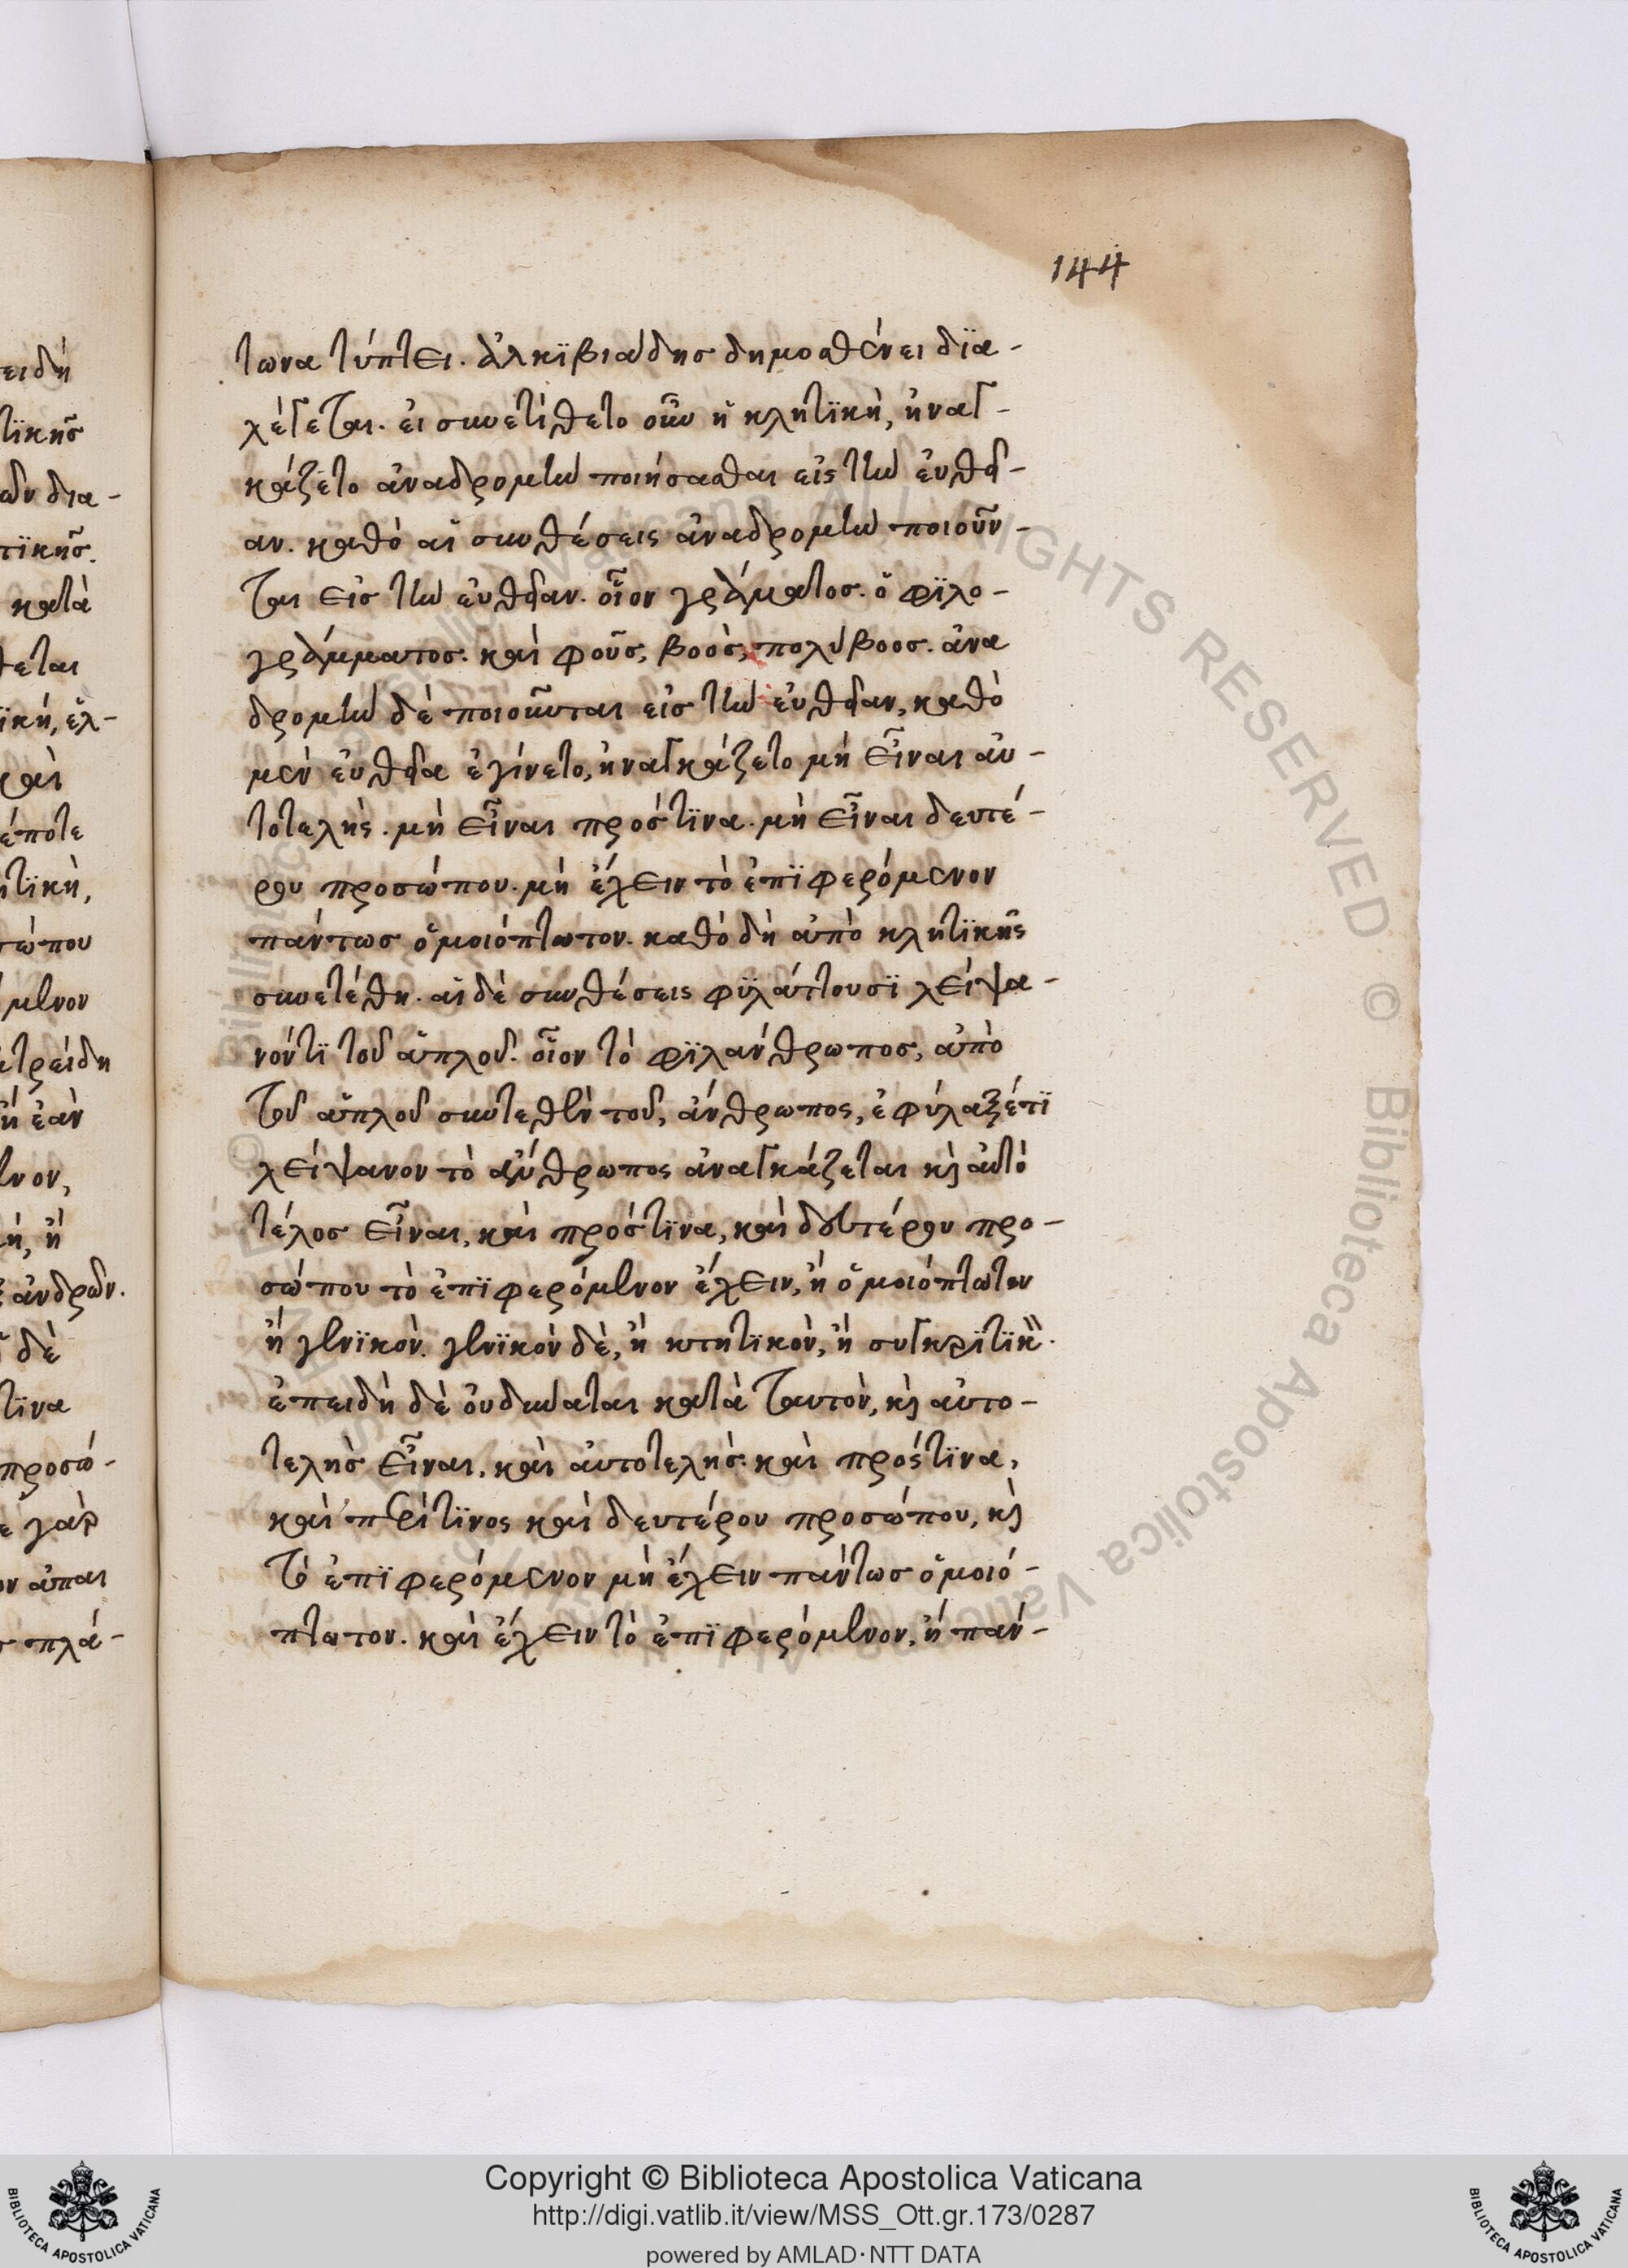 144
τωνα τύπτει. ἀλκϊβιάδησ δημοσθένει δϊα-
λέγεται. εἰ συνετίθετο οὖν ἡ κλητϊκὴ, ἠναγ-
κάζετο ἀναδρομὴν ποιήσασθαι εἰς τὴν εὐθεῖ-
αν. καθὸ αἱ συνθέσεις ἀναδρομὴν ποιοῦν-
ται εἰσ τὴν εὐθεῖαν. οἷον γράμματοσ. ὁ φϊλο-
γράμματοσ. καὶ φοῦσ, βοὸσ, πολύβοοσ. ἀνα
δρομὴν δὲ ποιοῦνται εἰσ τὴν εὐθεῖαν, καθὸ
μὲν εὐθεῖα ἐγίνετο, ἠναγκάζετο μὴ εἶναι αὐ-
τοτελὴς. μὴ εἶναι πρόστϊνα. μὴ εἶναι δευτέ-
ρου προσώπου. μὴ ἔχειν τὸ ἐπϊφερόμενον
πάντωσ ὁμοιόπτωτον. καθὸ δὴ ἀπὸ κλητϊκῆς
συνετέθη. αἱ δὲ συνθέσεις φϋλάττουσϊ λείψα-
νόντϊ τοῦ ἁπλοῦ. οἷον τὸ φϊλάνθρωποσ, ἀπὸ
τοῦ ἁπλοῦ συντεθὲν τοῦ, ἄνθρωπος, ἐφύλαξέτϊ
λείψανον τὸ ἄνθρωπος ἀναγκάζεται κὶ αὐτὸ
τέλοσ εἶναι, καὶ πρόστϊνα, καὶ δευτέρου προ-
σώπου τὸ ἐπϊφερόμενον ἔχειν, ἢ ὁμοιόπτωτον
ἢ γενϊκὸν. γενϊκὸν δὲ, ἢ κτητϊκὸν, ἢ συγκρϊτϊκὸν.
ἐπειδὴ δὲ οὐ δύναται κατὰ ταυτὸν, κὶ αὐτο-
τελὴσ εἶναι, καὶ αὐτοτελὴσ. καὶ πρόστϊνα,
καὶ περίτϊνος καὶ δευτέρου προσώπου, κὶ
τὸ ἐπϊφερόμενον μὴ ἔχειν πάντωσ ὁμοιό-
πτωτον. καὶ ἔχειν τὸ ἐπϊφερόμενον, ἢ πάν-
Copyright © Biblioteca Apostolica Vaticana
http://digi.vatlib.it/view/MSS_Ott.gr.173/0287
powered by AMLAD·NTT DATA